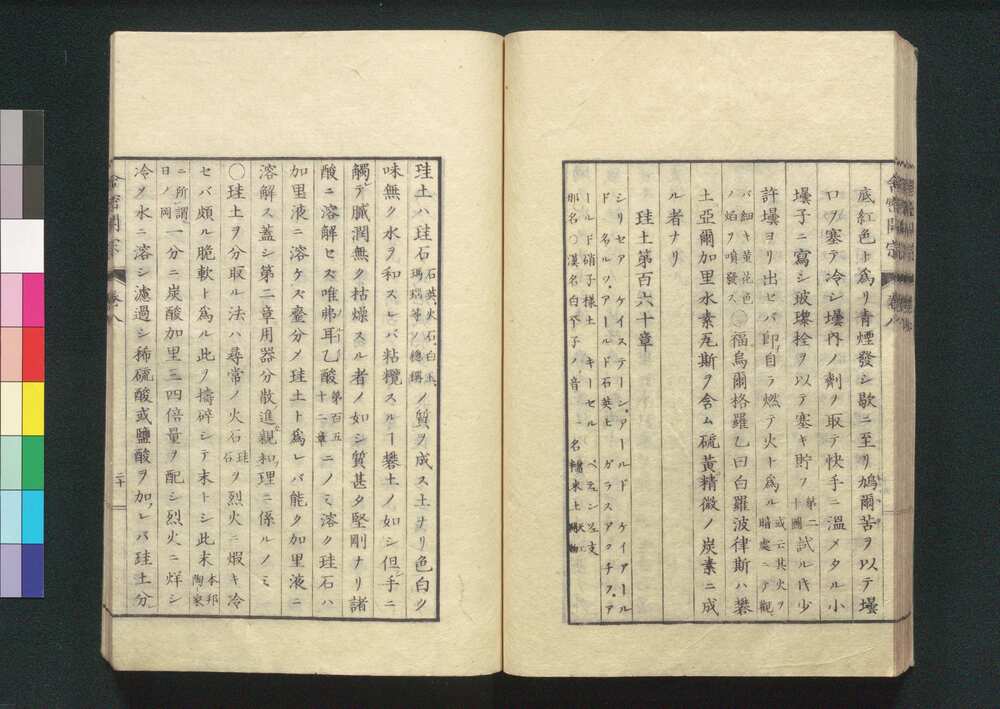 底紅色ト為リ青煙發シ歇ニ至リ鳩爾苦ヲ以テ壜
口ヲ塞テ冷シ壜内ノ劑ヲ取テ快手ニ温メタル小
壜子ニ寫シ玻瓈栓ヲ以テ塞キ貯フ第二十圖試ルニ少
許壜ヨリ出セバ即自ラ燃テ火ト為ル或云其火ヲ暗處ニテ觀
バ細キ黄花色ノ焰ヲ噴發ス○福烏爾格羅乙曰白羅波律斯ハ礬
土亞爾加里水素瓦斯ヲ含ム硫黄精微ノ炭素ニ成
ル者ナリ
珪土第百六十章
シリセア ケイステーン,アールド ケイアール
ド 名ル,ヅ,アールド石英土 ガラスアクチフ,ア
ールド硝子様土 キーセル ベテンフ支
那名○漢名白下子ノ音
珪土ハ珪石石英,火石,白玉,瑪瑙等ノ總稱ノ質ヲ成ス土ナリ色白ク
味無ク水ヲ和スレバ粘欖スルー礬土ノ如シ但手ニ
觸テ膩潤無ク枯燥スル者ノ如シ質甚タ堅剛ナリ諸
酸ニ溶解セス唯弗耳乙酸第百五十二章ニノミ溶ク珪石ハ
加里液ニ溶ケズ齏分メ珪土ト為レバ能ク加里液ニ
溶解ス蓋シ第二章用器分散進親和理ニ係ルノミ
○珪土ヲ分取ル法ハ尋常ノ火石珪石ヲ烈火ニ煆キ冷
セバ頗ル脆軟ト為ル此ヲ擣碎シテ末トシ此末本邦陶家
ニ所謂日ノ岡一分ニ炭酸加里三四倍量ヲ配シ烈火ニ烊シ
冷ヲ水ニ溶シ濾過シ稀硫酸或鹽酸ヲ加レバ珪土分
舎密開宗 巻八
二十